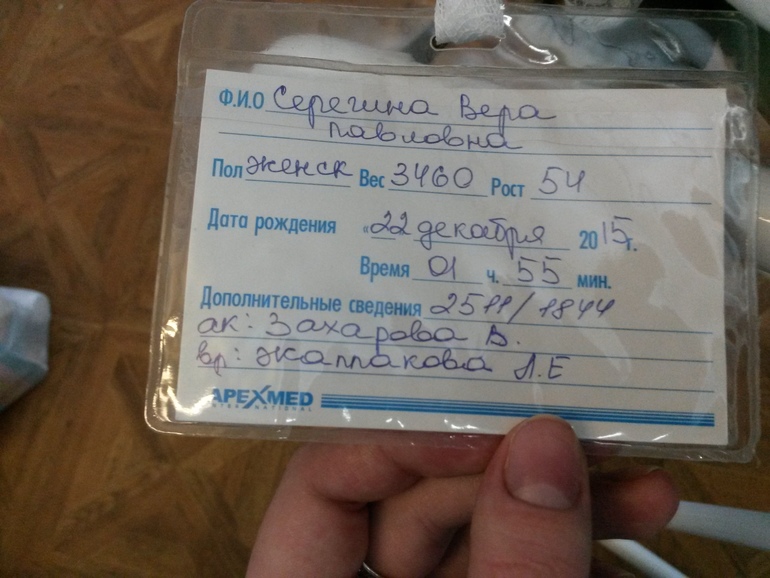 Ф.И.О Серегина Вера
Павловна
Пол женск Вес 3460 Рост 54
Дата рождения «22 декабря 2015г.
Время 01 ч. 55 мин.
Дополнительные сведения 2511/1844
ак: Захарова В.
вр: Жаппакова Л.Е
APEXMED
INTERNATIONAL